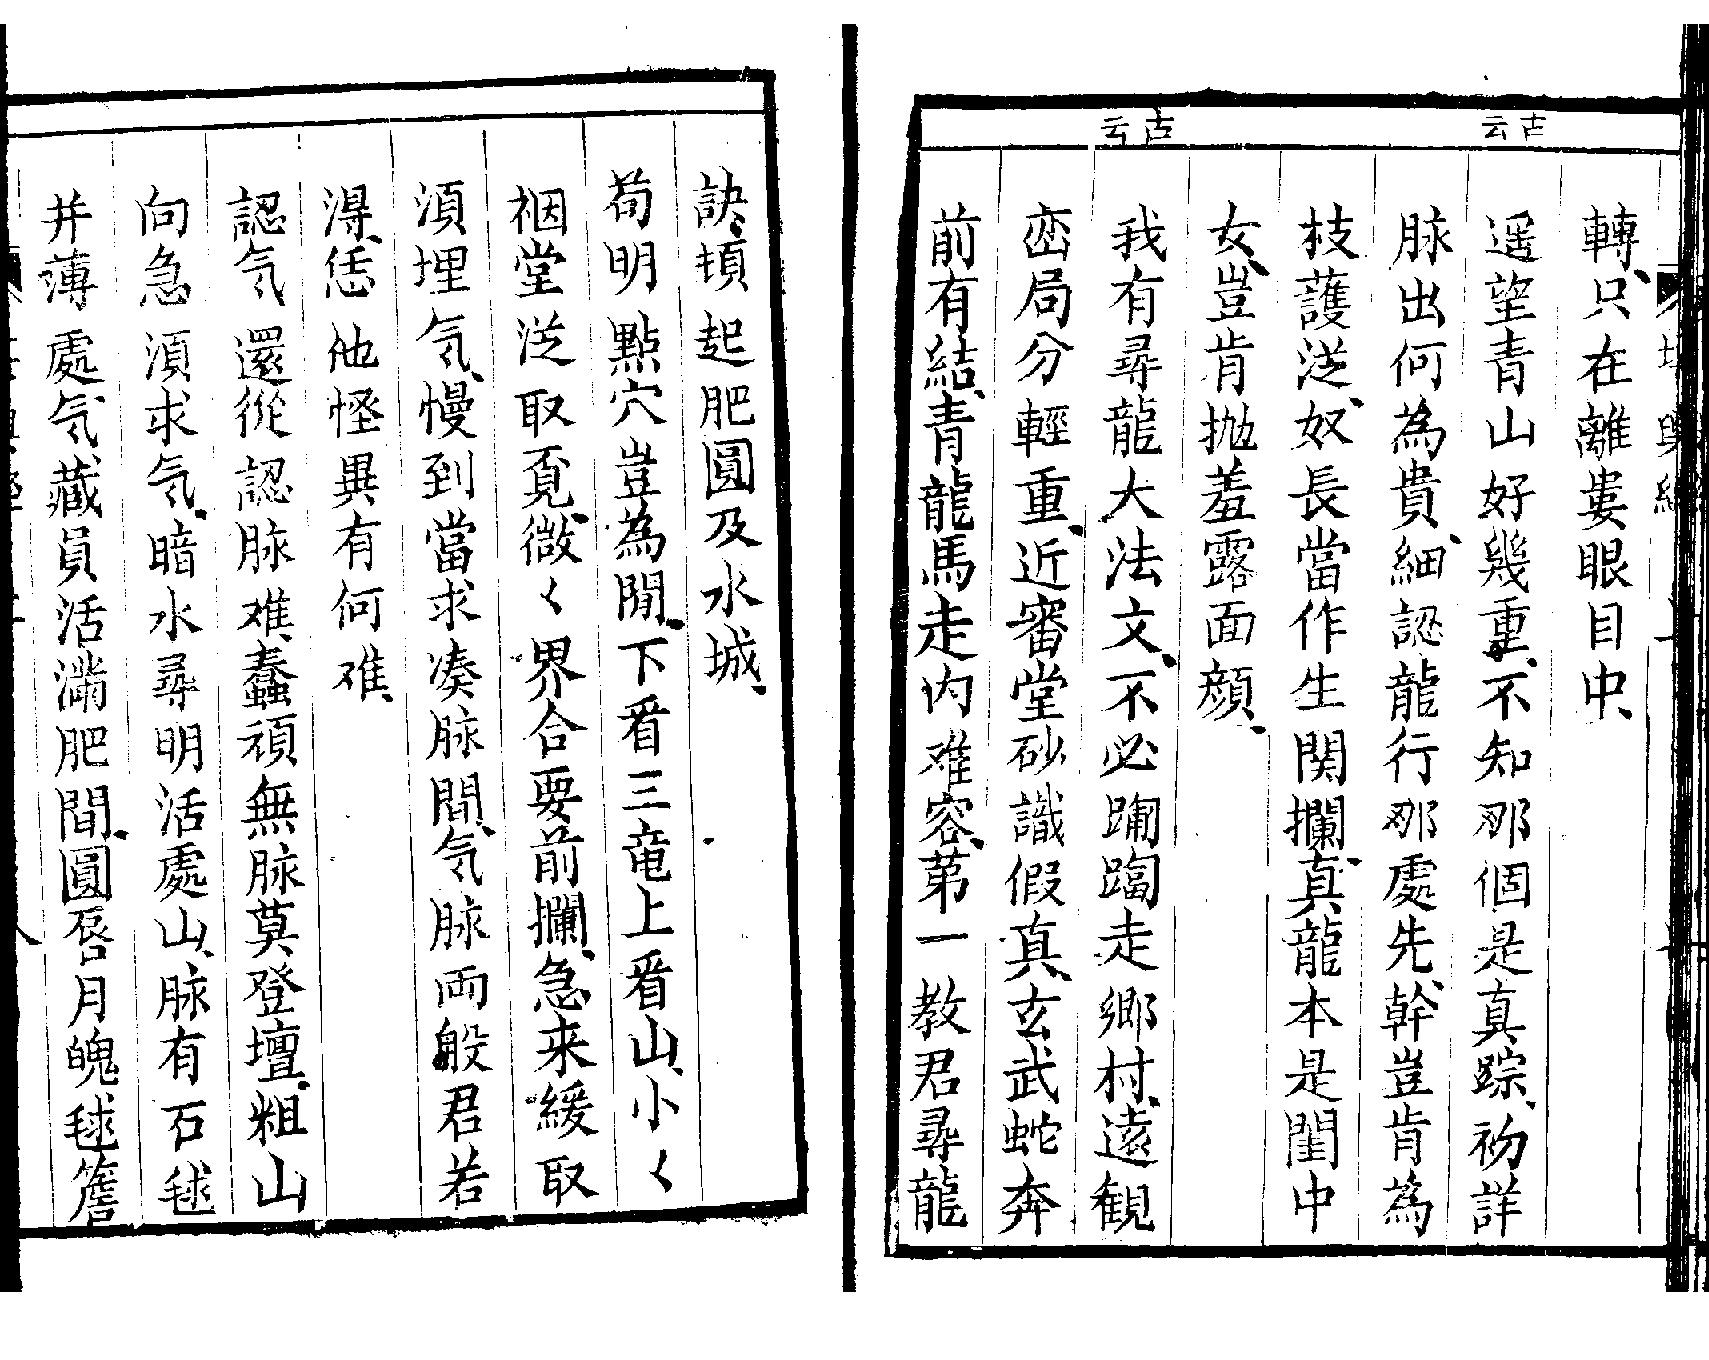 古云
古云
轉只在離婁眼目中
遥望青山好幾重不知那個是真踪初詳
脉出何為貴細認龍行那處先幹豈肯為
枝護㳂奴長當作生関攔真龍本是閨中
女豈肯抛羞露面顔
我有尋龍大法文不必蹋蹈走鄉村遠観
峦局分輕重近審堂砂識假真玄武蛇奔
前有結青龍馬走内难容苐一教君尋龍
訣頓起肥圓及水城
苟明點穴豈為閒下看三竜上看山小〻
裀堂㳂取覔微〻界合要前攔急来緩取
湏埋気慢到當求凑脉間気脉両般君若
淂恁他怪異有何难
認気還從認脉难蠢頑無脉莫登壇粗山
向急湏求気暗水尋明活處山脉有石毬
并薄處気藏員活滿肥間圓唇月魄毬簷